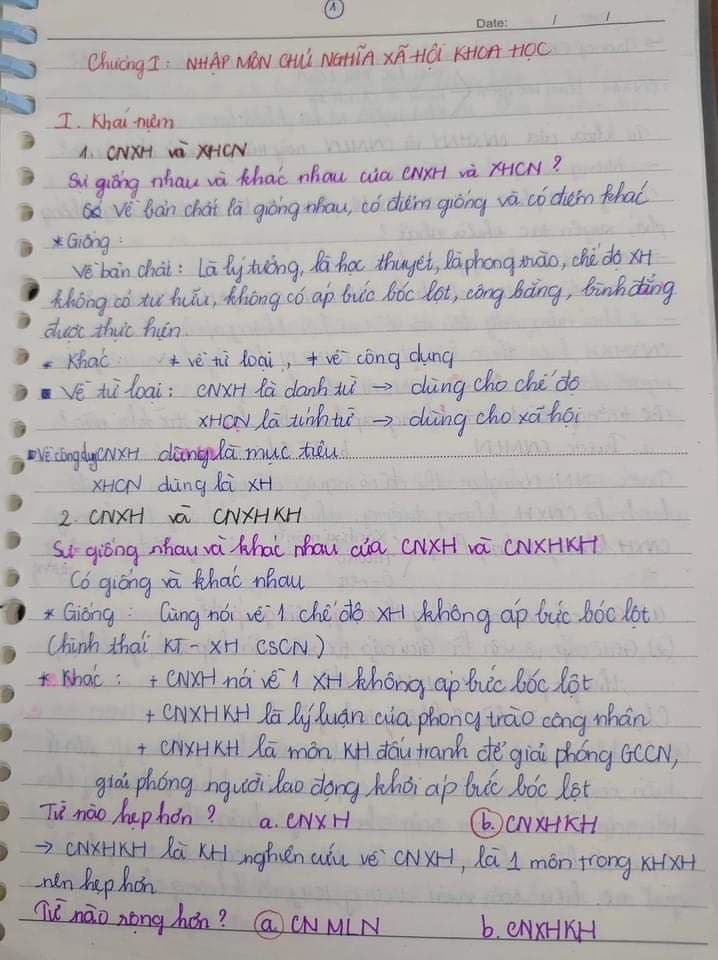 1
Date: / /
Chương I: NHẬP MÔN CHỦ NGHĨA XÃ HỘI KHOA HỌC
I. Khái niệm
1. CNXH và XHCN
Sự giống nhau và khác nhau của CNXH và XHCN?
Về bản chất là giống nhau, có điểm giống và có điểm khác
* Giống:
Về bản chất: Là lý tưởng, là học thuyết, là phong trào, chế độ XH
không có tư hữu, không có áp bức bóc lột, công bằng, bình đẳng
được thực hiện.
* Khác: + về từ loại, + về công dụng
▪ Về từ loại: CNXH là danh từ → dùng cho chế độ
XHCN là tính từ → dùng cho xã hội
▪ Về công dụng CNXH dùng là mục tiêu
XHCN dùng là XH
2. CNXH và CNXHKH
Sự giống nhau và khác nhau của CNXH và CNXHKH
Có giống và khác nhau
* Giống: Cùng nói về 1 chế độ XH không áp bức bóc lột
(hình thái KT - XH CSCN)
* Khác: + CNXH nói về 1 XH không áp bức bóc lột
+ CNXHKH là lý luận của phong trào công nhân
+ CNXHKH là môn KH đấu tranh để giải phóng GCCN,
giải phóng người lao động khỏi áp bức bóc lột
Từ nào hẹp hơn? a. CNXH b. CNXHKH
→ CNXHKH là KH nghiên cứu về CNXH, là 1 môn trong KHXH
nên hẹp hơn
Từ nào rộng hơn? a. CN MLN b. CNXHKH